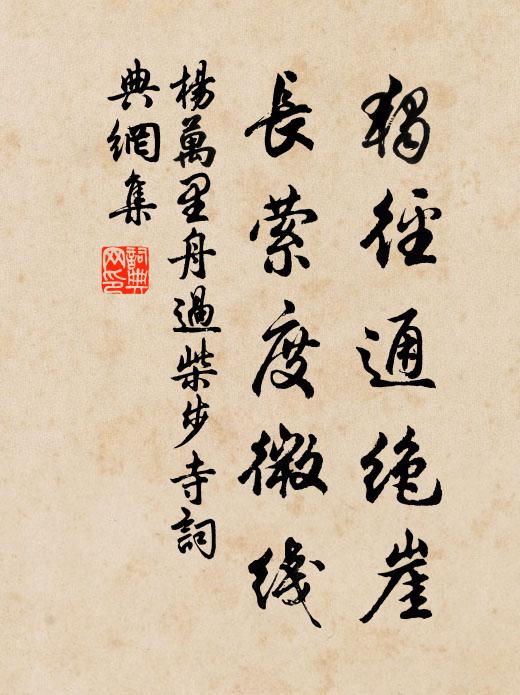 獨徑通絶崖
長縈度微线
楊萬里舟過柴步寺詞
典網集
詞典
网印